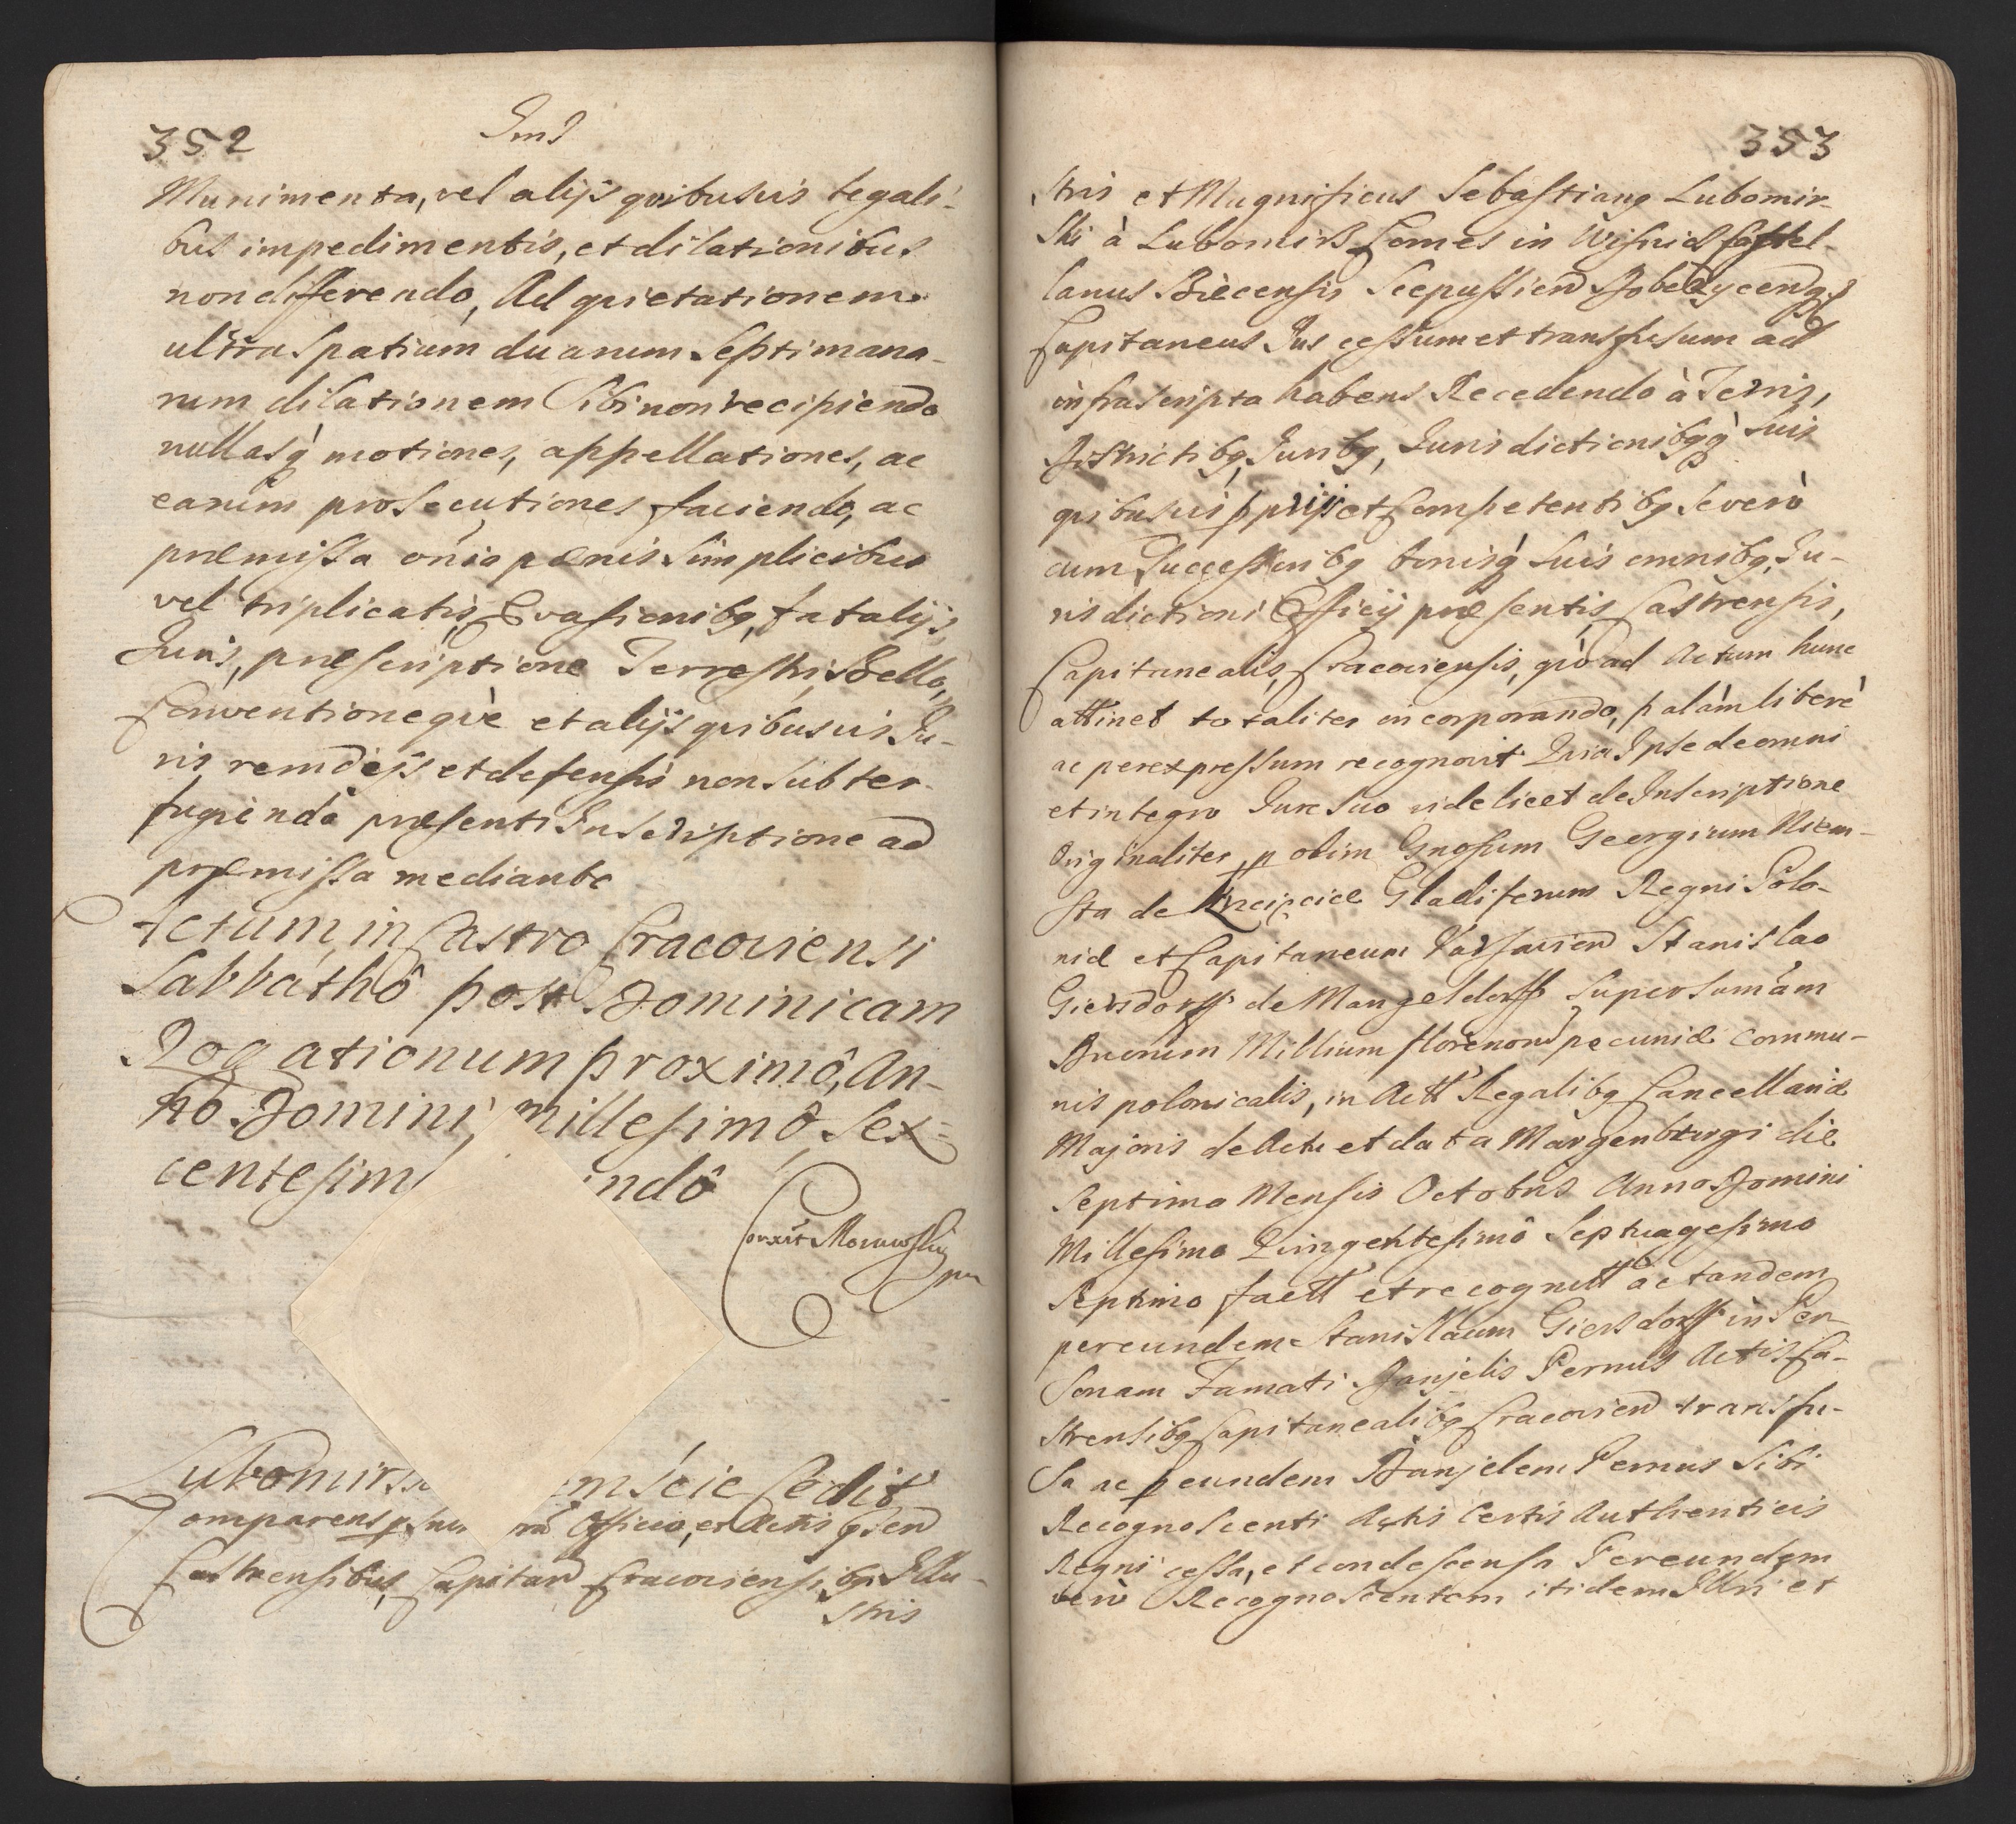 352
Munimenta, vel alijs quibusvis legali-
bus impedimentis, et dilationibus
non differendo, Ad quietationem
ultra spatium duarum Septimana-
rum dilationem Sibi non recipiendo
nullasq̀ motiones, appellationes, ac
earum prosecutiones faciendo, ac
præmissa oñia pœnis simplicibus
vel triplicatis, Evasionibq, fatalijs
Juris, præscriptione Terrestri, Bello,
Conventioneque et alijs quibusvis Ju-
ris remedijs et defensis non subter-
fugiendo præsenti Inscriptione ad
præmissa mediante
Actum, in Castro Cracoviensi
Sabbathô post Dominicam
Rogationum proximô, An-
nô Domini, millesimô Sex-
centesim ndô
Morawski
mp
Lubomirs mscie Cedit
Comparens Officio, et Actis
Castrensibus, Capitan Cracoviensibq Illu-
stris
353
stris et Magnificus Sebastianq Lubomir-
ski à Lubomirz Comes in Wisnicz Castel-
lanus Biecensis Scepusien Dobczycen
Capitaneus Jus cessum et transfusum ad
infrascripta habens Recedendo à Terris,
Districtibq, Juribq, Jurisdictionibqq̀ suis
quibusvis pprijs et Competentibq se verò
cum Successoribq bonisq̀ suis omnibq, Ju-
risdictioni Officij præsentis Castrensis,
Capitanealis, Cracoviensis, quò ad Actum hunc
attinet totaliter incorporando, palàm liberè
ac per expressum recognovit Quia Ipse de omni
et integro Jure suo videlicet de Inscriptione
Originaliter p olim Gnosum Georgium Niem-
sta de Krzcięcice Gladiferum Regni Polo-
niæ et Capitaneum Varsavien Stanislao
Giersdorff de Mangelsdorff super sumãm
Duorum Millium florenorũ pecuniæ commu-
nis polonicalis, in Actt Regalibq Cancellariæ
Majoris de Actu et data Margenburgi die
septima Mensis Octobris Anno Domini
Millesimo Quingentesimô Septuagesimo
Septimo factt et recognitt ac tandem
per eundem Stanislaum Giersdorff in Per-
sonam Famati Danjelis Pernus Actis Ca-
strensibq Capitanealibq Cracovien transfu-
sa ac p eundem Danjelem Pernus Sibi
Recognoscenti Actis Certis Authenticis
Regni cessa, et condescensa Per eundem
verò Recognoscentem itidem Illri et